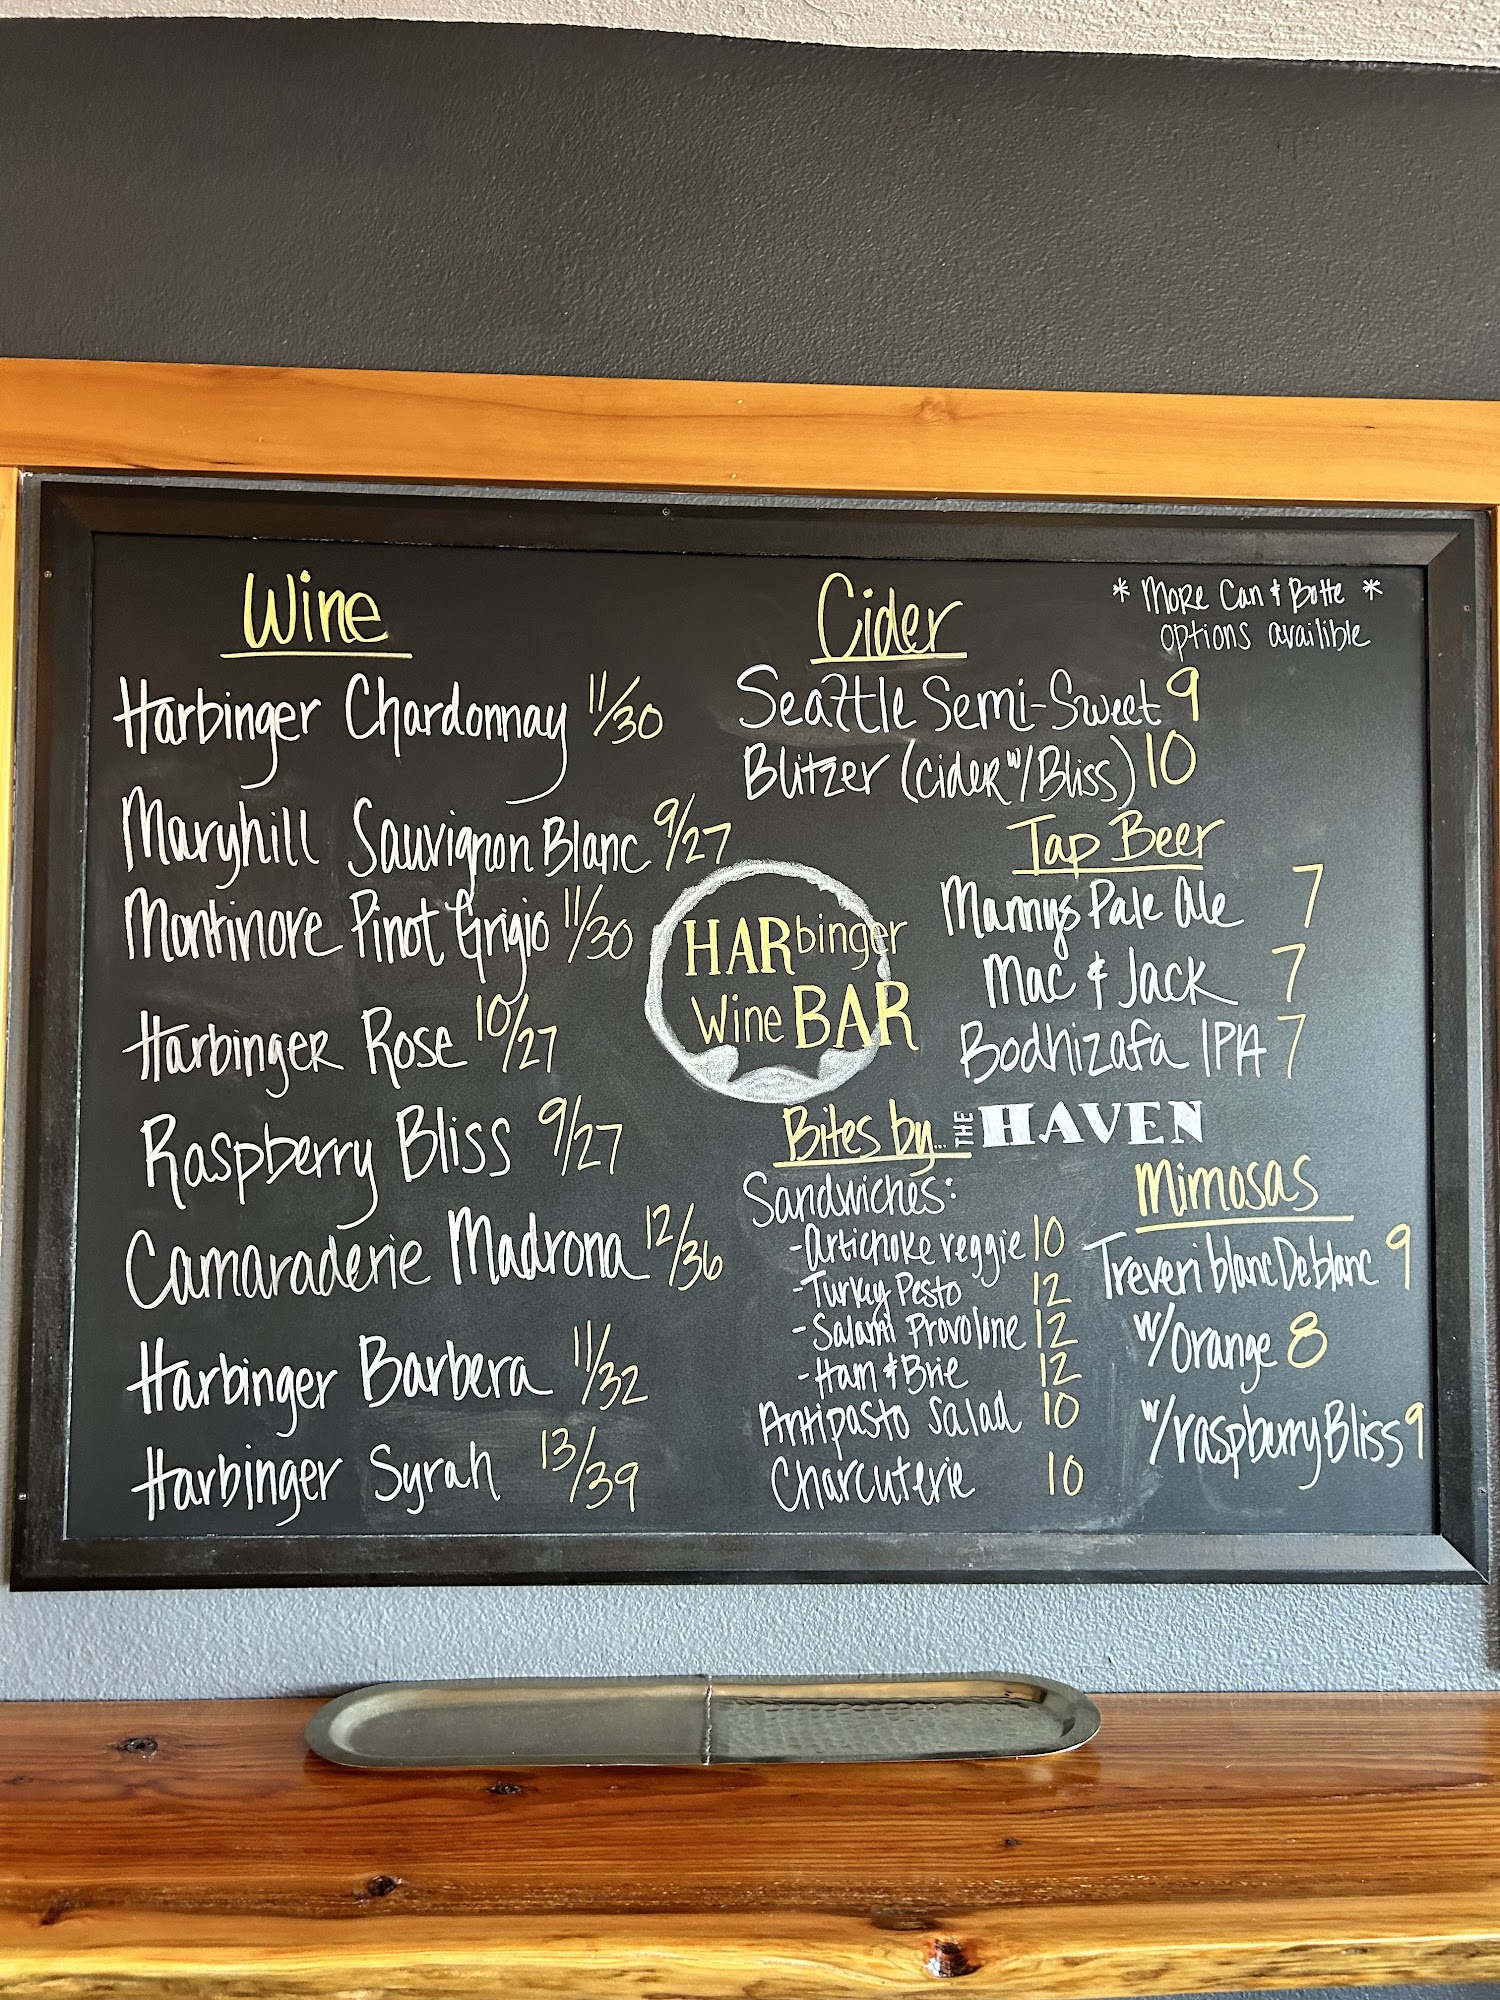 Wine
Harbinger Chardonnay 11/30
Maryhill Sauvignon Blanc 9/27
Montinore Pinot Grigio 11/30
Harbinger Rose 10/27
Raspberry Bliss 9/27
Camaraderie Madrona 12/36
Harbinger Barbera 11/32
Harbinger Syrah 13/39
HARbinger
Wine BAR
Cider
Seattle Semi-Sweet 9
Blitzer (cider w/Bliss) 10
* More Can & Bottle *
options availible
Tap Beer
Mannys Pale Ale 7
Mac & Jack 7
Bodhizafa IPA 7
Bites by... THE HAVEN
Sandwiches:
-Artichoke veggie 10
-Turkey Pesto 12
-Salami Provolone 12
-Ham & Brie 12
Antipasto Salad 10
Charcuterie 10
Mimosas
Treveri blanc De blanc 9
w/orange 8
w/raspberry Bliss 9